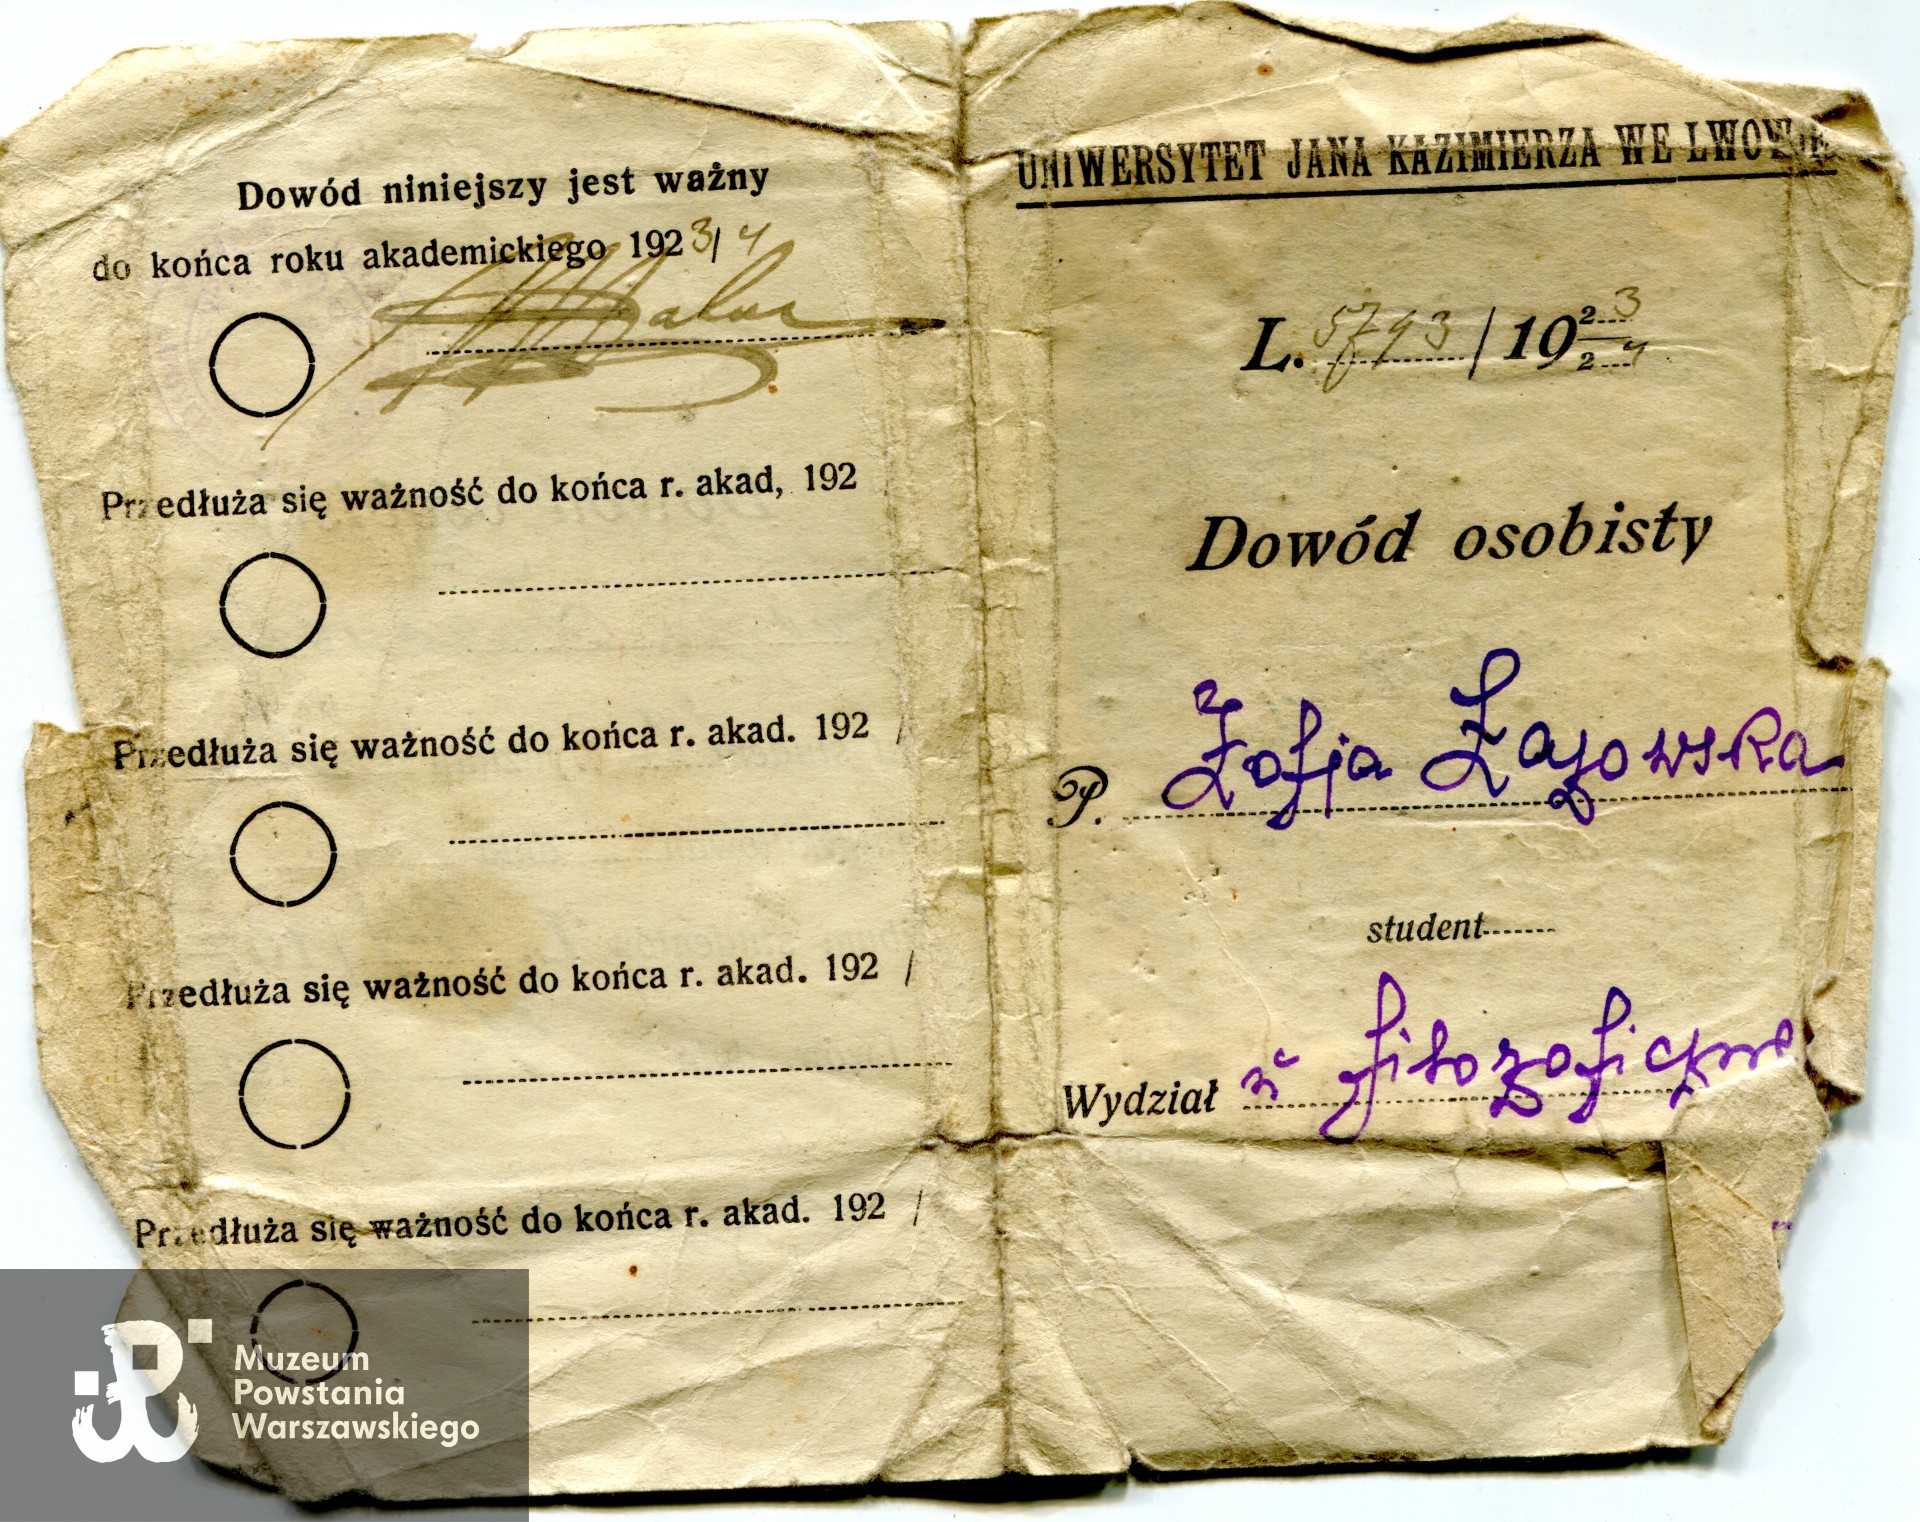 Dowód niniejszy jest ważny
do końca roku akademickiego 1923/4
Przedłuża się ważność do końca r. akad, 192
Przedłuża się ważność do końca r. akad. 192 /
Przedłuża się ważność do końca r. akad. 192 /
Przedłuża się ważność do końca r. akad. 192 /
UNIWERSYTET JANA KAZIMIERZA WE LWOWIE
L. 5793 / 19 23
24
Dowód osobisty
P. Zofja Łazowska
student
Wydział filozoficzne
Muzeum
Powstania
Warszawskiego